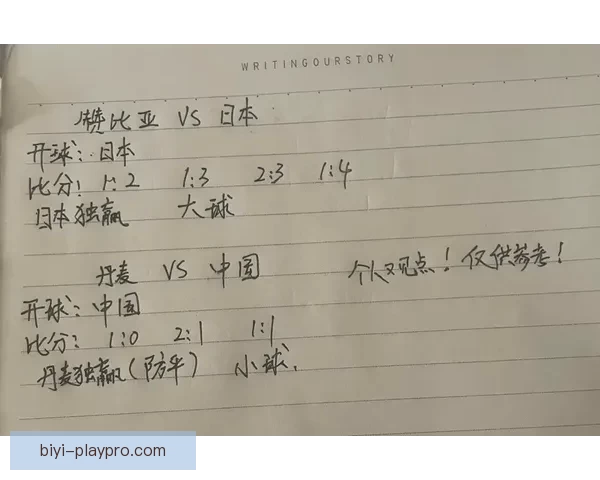 WRITINGOURSTORY
赞比亚 VS 日本
开球：日本
比分：1:2 1:3 2:3 1:4
日本独赢 大球
丹麦 VS 中国
个人观点！仅供参考！
开球：中国
比分：1:0 2:1 1:1
丹麦独赢（防平） 小球.
biyi-playpro.com